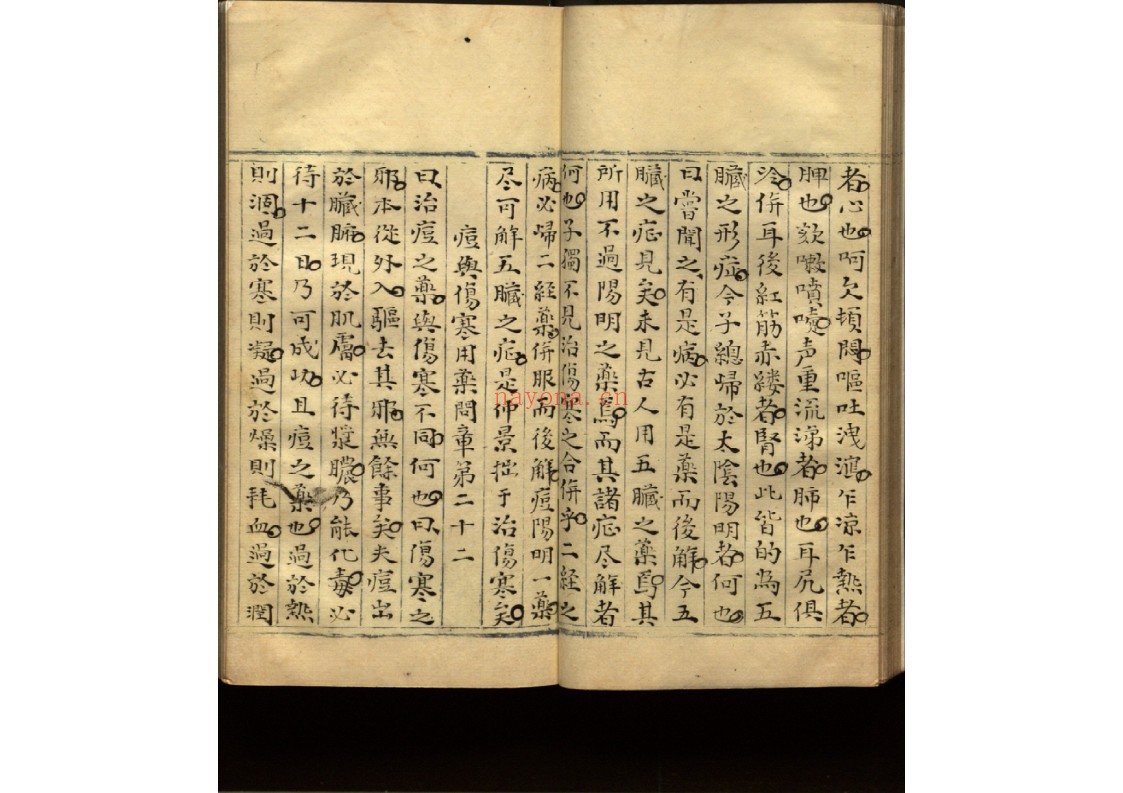 者心也呵欠頓悶嘔吐洩瀉乍涼乍熱者
脾也欬嗽噴嚏声重流涕者肺也耳尻俱
冷併耳後紅筋赤縷者腎也此皆的為五
臓之形症今子總歸於太陰陽明者何也
曰嘗聞之有是病必有是藥而後解今五
臓之症見矣未見古人用五臓之藥焉其
所用不過陽明之藥焉而其諸症尽解者
何也子獨不見治傷寒之合併乎二経之
病必歸二経藥併服而後解痘陽明一藥
尽可解五臓之症是仲景拙于治傷寒矣
痘與傷寒用藥問章第二十二
曰治痘之藥與傷寒不同何也曰傷寒之
邪本從外入驅去其邪無餘事矣夫痘出
於臓腑現於肌膚必待漿膿乃能化毒必
待十二日乃可成功且痘之藥也過於熱
則涸過於寒則凝過於燥則耗血過於潤
nayona.cn